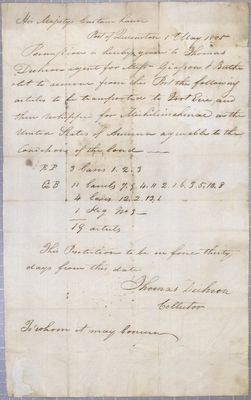 His Majestys Custom House
Port of Queenston 1st May 1835
Permission is hereby given to Thomas
Duncan agent for
to remove from this Port the following
articles to be transported to Fort Erie and
there reshipped for Michilimackinac in the
United States of America agreeable to the
Conditions of the bond
3 Cases 1. 2. 3
11 Casks 7. 9. 4. 11. 2. 1. 6. 3. 5. 10. 8
4 Cases
1 Keg No 3
19 articles
This Protection to be in force thirty
days from this date
Thomas Dickson
Collector
To whom it may Concern